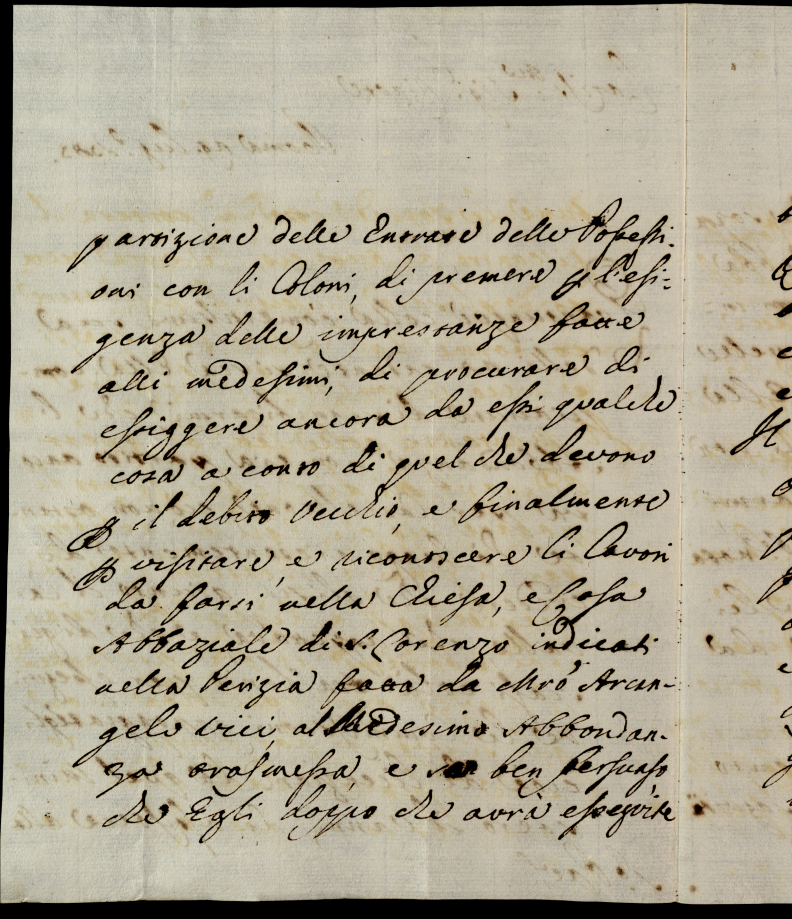 partizione delle Entrate delle Possessi:
oni con li Coloni, di premere p l'esi:
genza delle imprestanze fatte
alli medesimi, di procurare di
essiggere ancora da essi qualche
cosa a conto di quel che devono
p il debito Vecchio, e finalmente
p visitare, e riconoscere li Lavori
da farsi nella Chiesa, e Casa
Abbaziale di S. Lorenzo indicati
nella Perizia fatta da Mro Arcan-
gelo Vici, al Medesimo Abbondan-
za trasmessa, e son ben persuaso
che Egli doppo che avrà esseguite